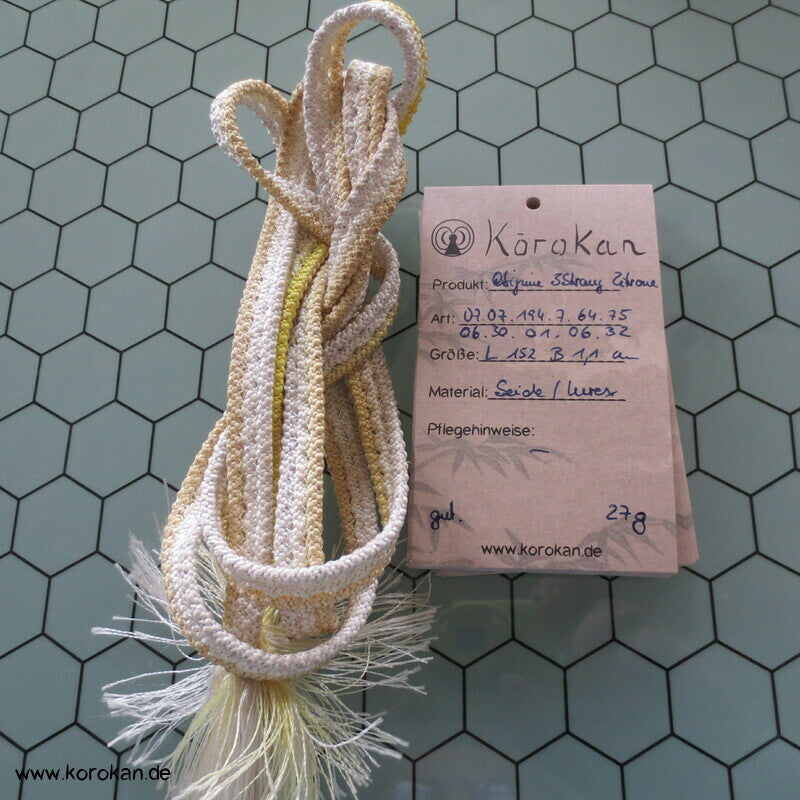 KōroKan
Produkt: Obijime 3Strang Zitrone
Art: 07.07.194.7.64.75
06.30.01.06.32
Größe: L 152 B 1,1 cm
Material: Seide / Lurex
Pflegehinweise:
–
gut. 27g
www.korokan.de
www.korokan.de